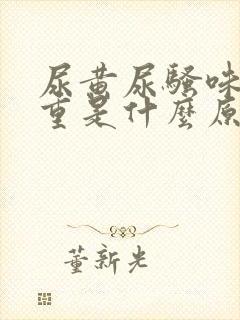 尿黄尿騷味
重是什麼原
董新光